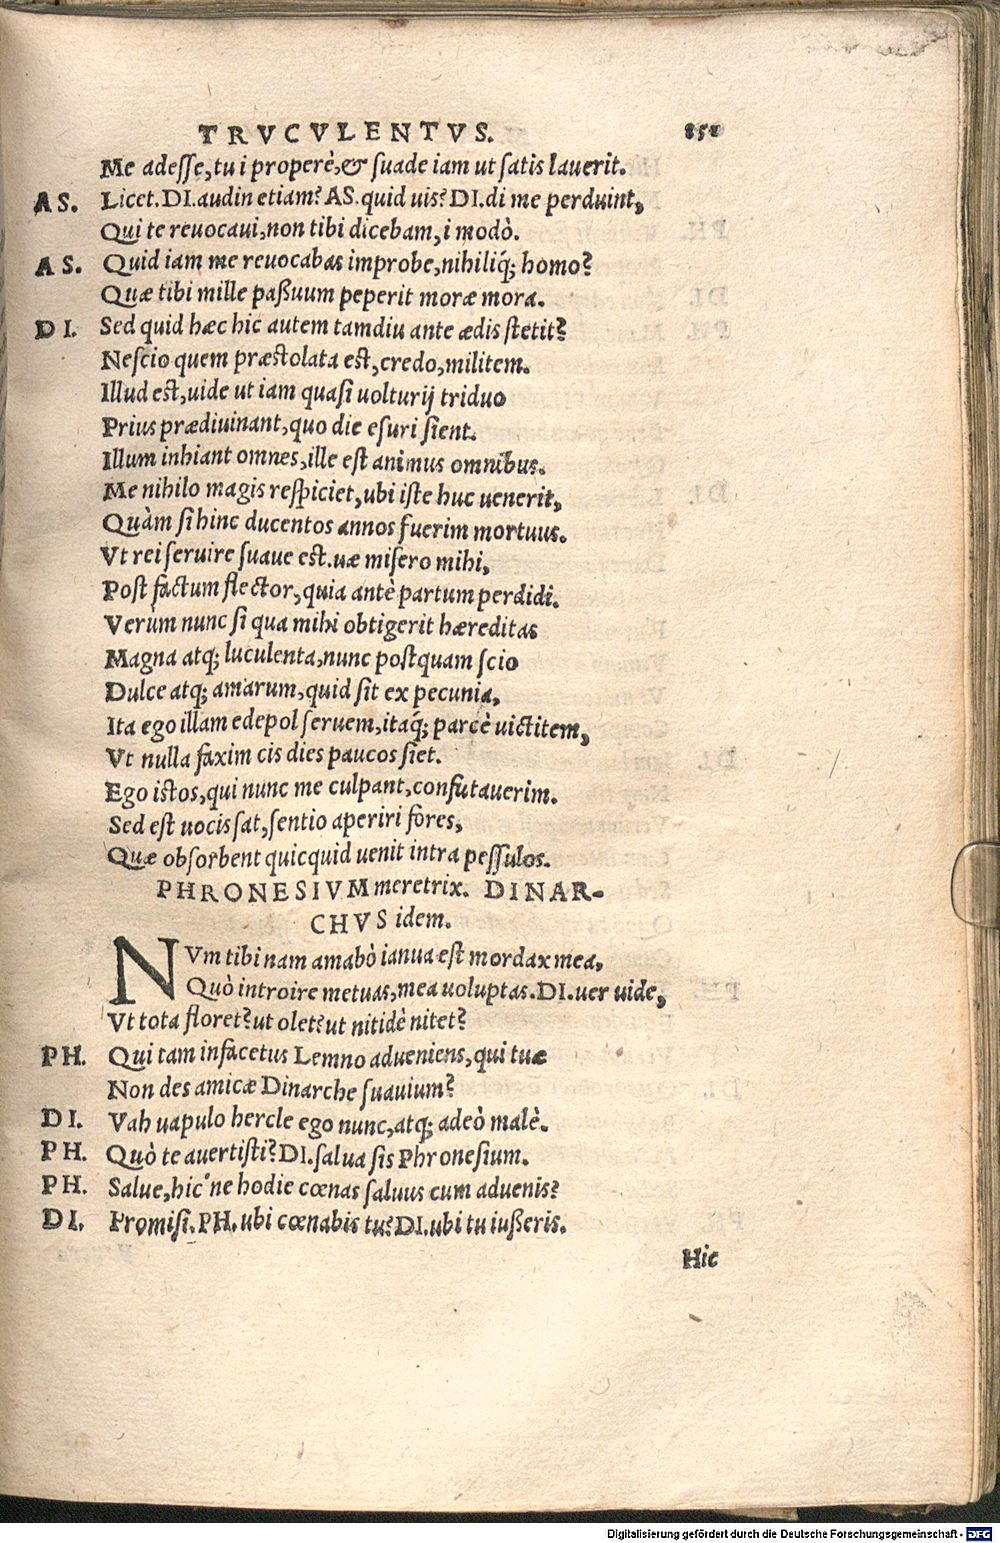 TRVCVLENTVS. 851
Me adesse, tu i properè, & suade iam ut satis lauerit.
AS. Licet. DI. audin etiam? AS. quid uis? DI. di me perduint,
Qui te reuocaui, non tibi dicebam, i modò.
AS. Quid iam me reuocabas improbe, nihiliq́; homo?
Quæ tibi mille paßuum peperit moræ mora.
DI. Sed quid hæc hic autem tamdiu ante ædis stetit?
Nescio quem præstolata est, credo, militem.
Illud est, uide ut iam quasi uolturij triduo
Prius prædiuinant, quo die esuri sient.
Illum inhiant omnes, ille est animus omnibus.
Me nihilo magis respiciet, ubi iste huc uenerit,
Quàm si hinc ducentos annos fuerim mortuus.
Vt rei seruire suaue est. uæ misero mihi,
Post factum flector, quia antè partum perdidi.
Verum nunc si qua mihi obtigerit hæreditas
Magna atq; luculenta, nunc postquam scio
Dulce atq; amarum, quid sit ex pecunia,
Ita ego illam edepol seruem, itaq́; parcè uictitem,
Vt nulla faxim cis dies paucos siet.
Ego istos, qui nunc me culpant, confutauerim.
Sed est uocis sat, sentio aperiri fores,
Quæ obsorbent quicquid uenit intra pessulos.
PHRONESIVM meretrix. DINAR-
CHVS idem.
NVm tibi nam amabò ianua est mordax mea,
Quò introire metuas, mea uoluptas. DI. uer uide,
Vt tota floret? ut olet? ut nitidè nitet?
PH. Qui tam infacetus Lemno adueniens, qui tuæ
Non des amicæ Dinarche suauium?
DI. Vah uapulo hercle ego nunc, atq; adeò malè.
PH. Quò te auertisti? DI. salua sis Phronesium.
PH. Salue, hic'ne hodie cœnas saluus cum aduenis?
DI. Promisi. PH. ubi cœnabis tu? DI. ubi tu iußeris.
Hic
Digitalisierung gefördert durch die Deutsche Forschungsgemeinschaft - DFG